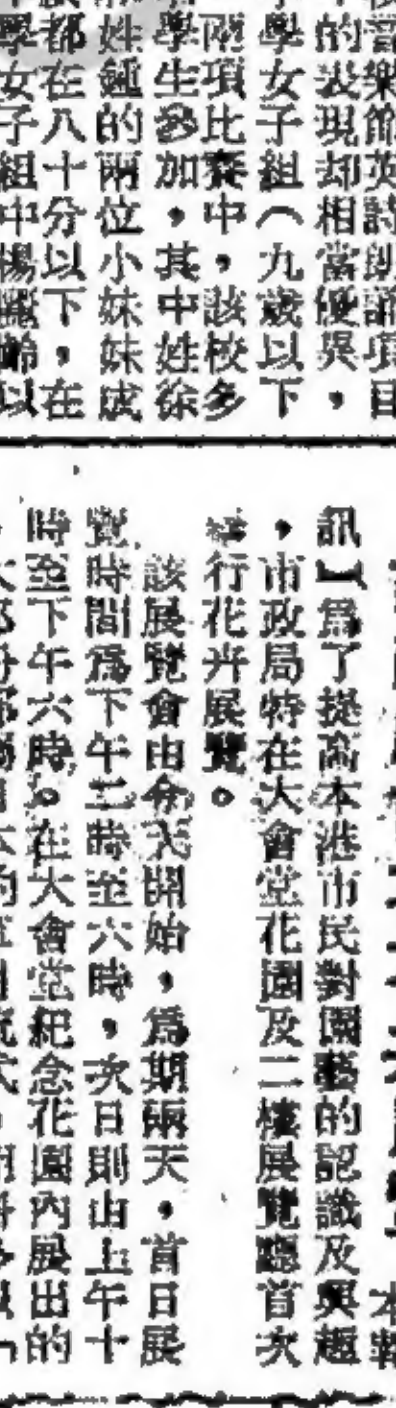 校音樂節英詩朗誦項目
的表現却相當優異，
學女子組（九歲以下
兩項比賽中，該校多
學生參加，其中姓徐
姓鍾的兩位小妹妹成
都在八十分以下，在
學女子組中楊麗齡以
本報
訊】爲了提高本港市民對園藝的認識及興趣
，市政局特在大會堂花園及二樓展覽廳首次
舉行花卉展覽。
該展覽會由今天開始，爲期兩天，首日展
覽時間爲下午二時至六時，次日則由上午十
時至下午六時。在大會堂紀念花園內展出的